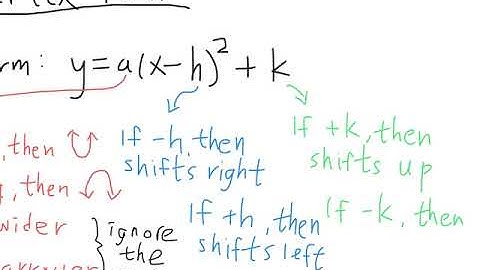 y=a(x-h)² + k
If -h, then
shifts right
If +h, then
shifts left
If +k, then
shifts up
If -k, then
, then
, then
wider
ignore
the